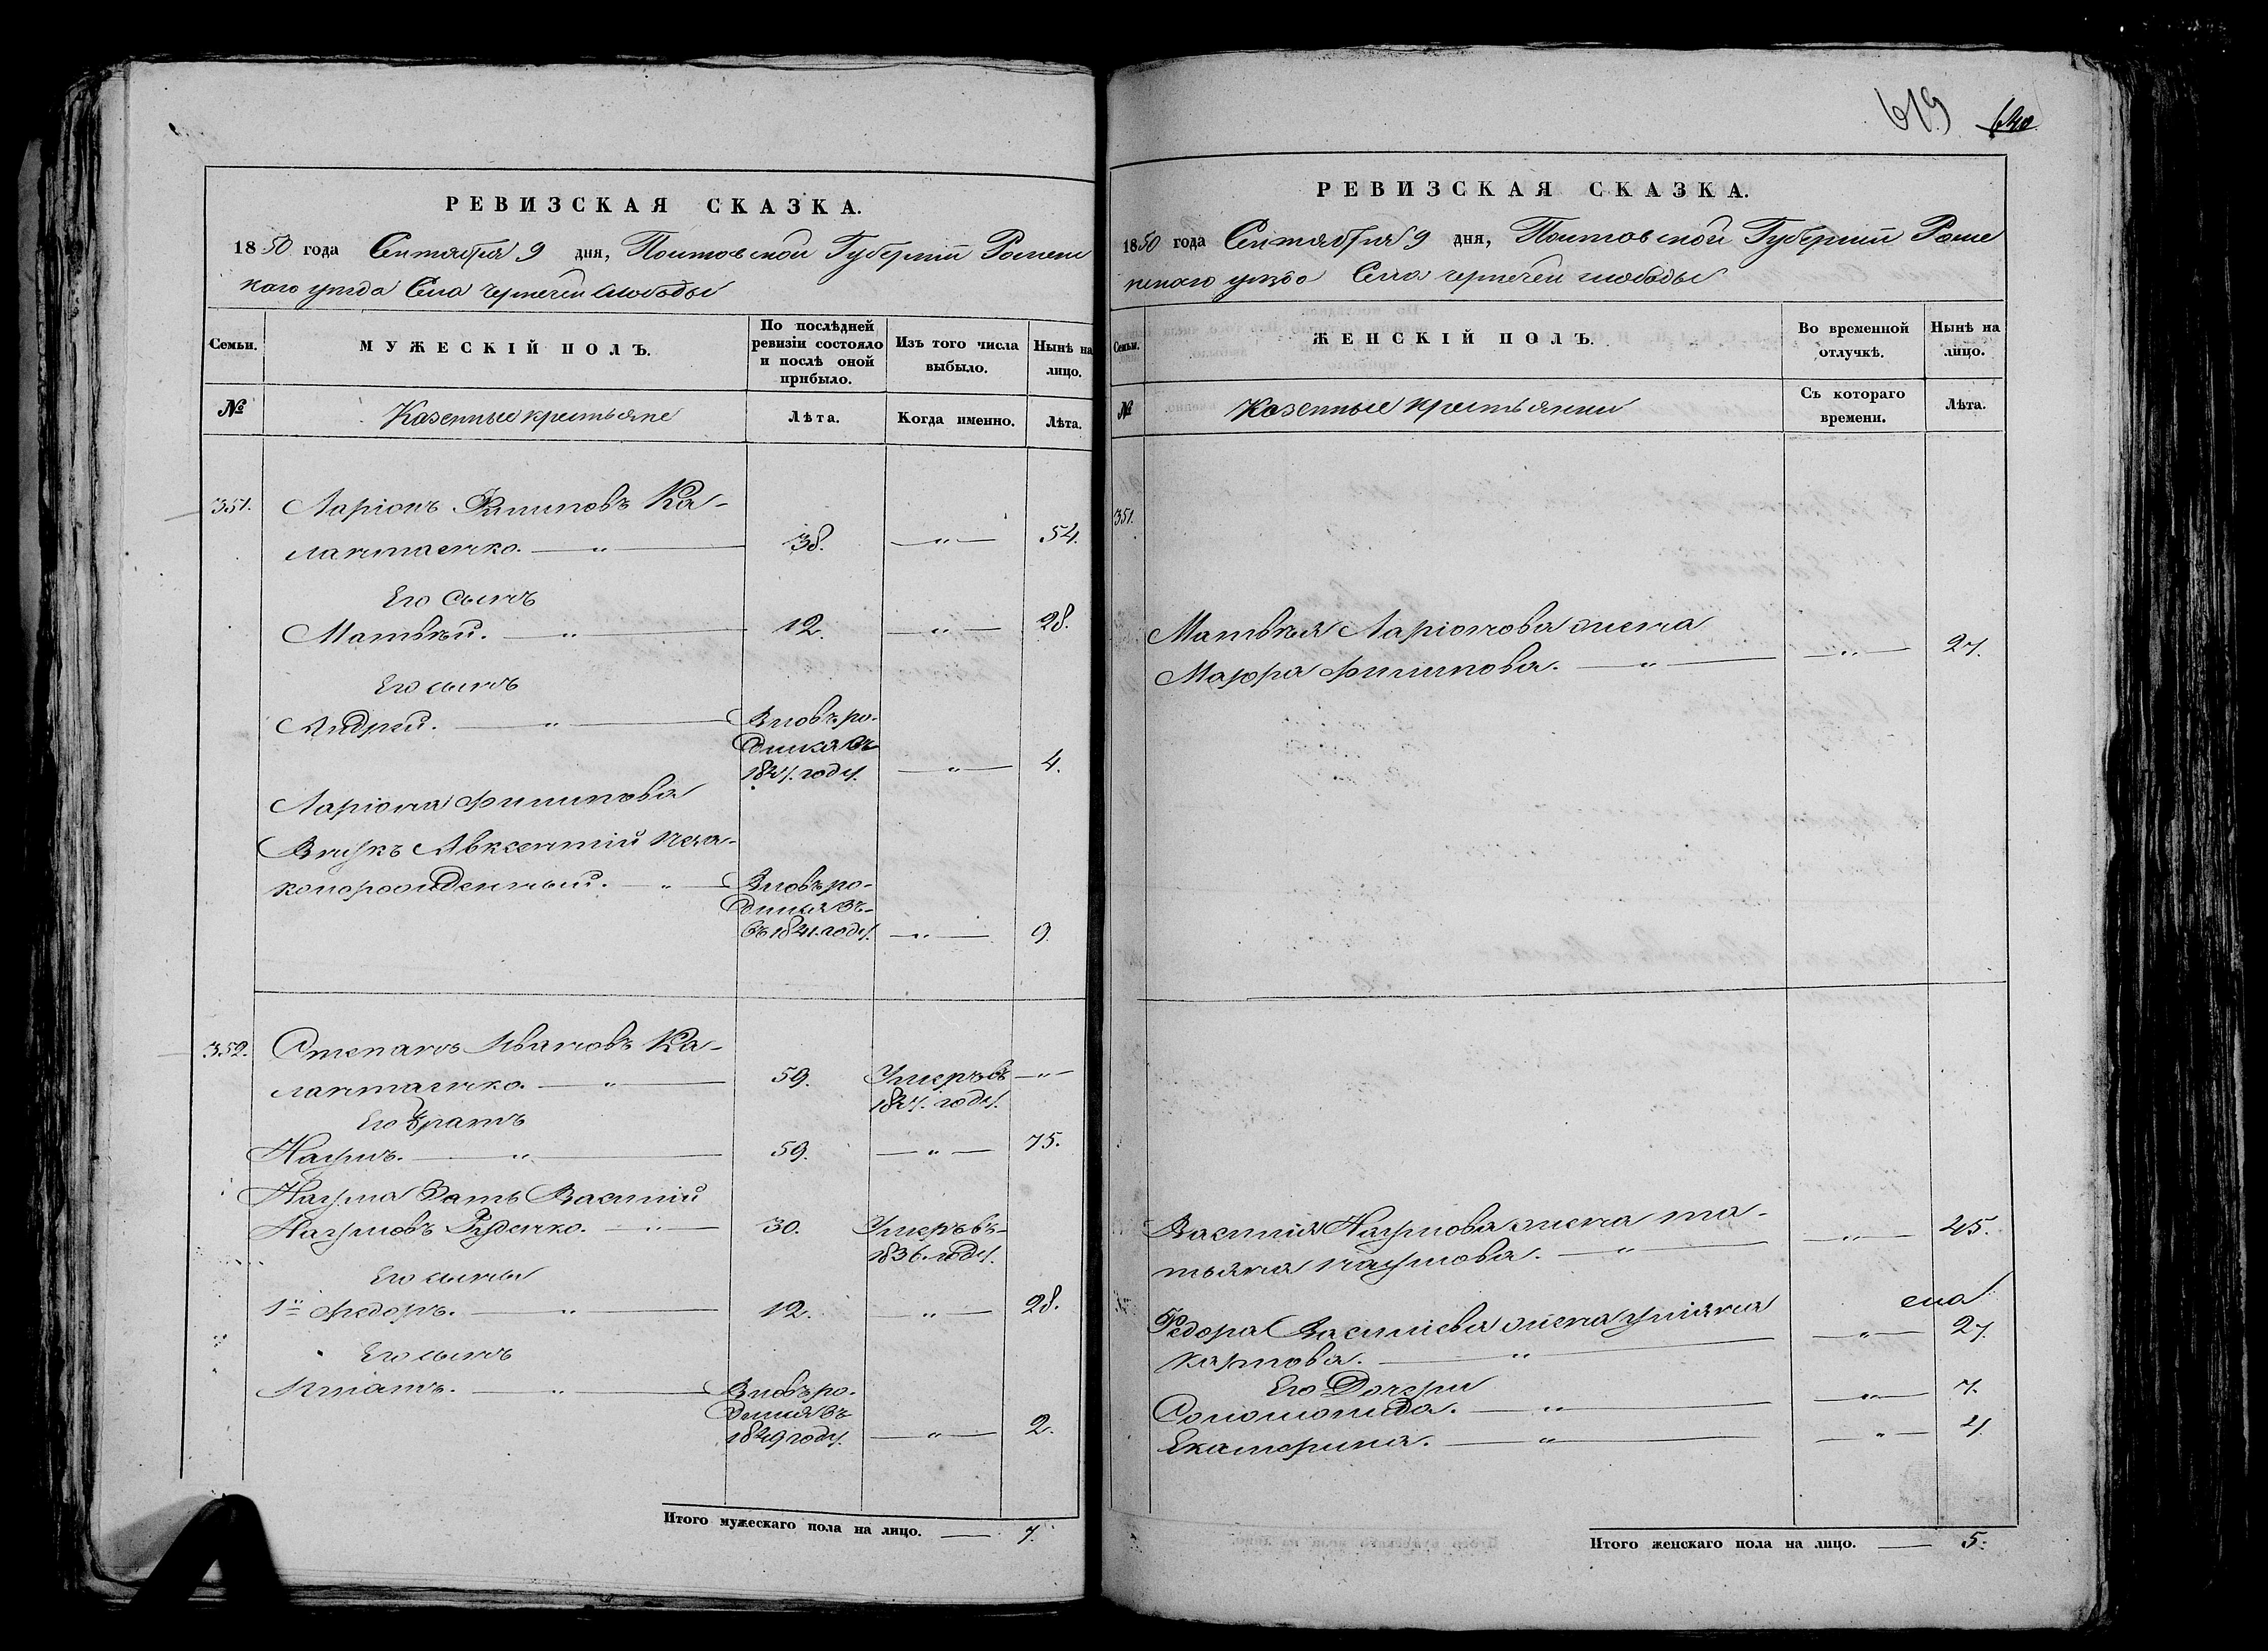 619 640
РЕВИЗСКАЯ СКАЗКА.
1850 года Сентября 9 дня, Полтовской Губерніи Ромен
кого уезда Села чернечей слободы
Семьи.
МУЖЕСКІЙ ПОЛЪ.
По послѣдней
ревизіи состояло
и послѣ оной
прибыло.
Изъ того числа
выбыло.
Нынѣ на
лицо.
№
Казенные крестьяне
Лѣта.
Когда именно.
Лѣта.
351. Ларіонъ Филиповъ Ка-
лантаенко. — „ — 38. — „ — 54.
Его Сынъ
Матвѣй. — „ — 12. — „ — 28.
Его сынъ
Андрей. — „ — Вновь ро-
дился въ
1847. году. — „ — 4.
Ларіона филипова
Внукъ Авксентій неза-
конорожденный. — „ — Вновь ро-
дился въ-
въ 1841. году. — „ — 9.
352. Степанъ Ивановъ Ка-
лантаенко. — „ — 59. Умеръ въ — „ —
1847. году.
Его братъ
Наумъ. — „ — 59. — „ — 75.
Наума Зать Василій
Наумовъ Руденко. — „ — 30. Умеръ въ-
1836. году.
Его сыны
1й федоръ. — „ — 12. — „ — 28.
Его сынъ
Игнатъ. — „ — Вновь ро-
дился въ
1849 году. — „ — 2.
Итого мужескаго пола на лицо. — 7.
РЕВИЗСКАЯ СКАЗКА.
1850 года Сентября 9 дня, Полтовской Губерніи Роме
нского уезда Села чернечей слободы
Семьи.
ЖЕНСКІЙ ПОЛЪ.
Во временной
отлучкѣ.
Нынѣ на
лицо.
№
Казенные крестьянки
Съ котораго
времени.
Лѣта.
351.
Матвѣя Ларіонова жена
Марфа филипова. — „ — — „ — 27.
Василія Наумова жена та-
тьяна наумова. — „ — — „ — 45.
Федора Василіева жена уліяна
карпова. — „ — — „ — 27.
Его Дочери
Соломонида. — „ — — „ — 7.
Екатерина. — „ — — „ — 4
Итого женскаго пола на лицо. — 5.